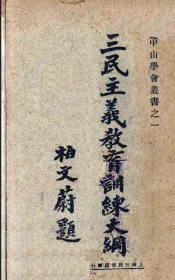 中山學會叢書之一
三民主義教育訓練大綱
柏文蔚題